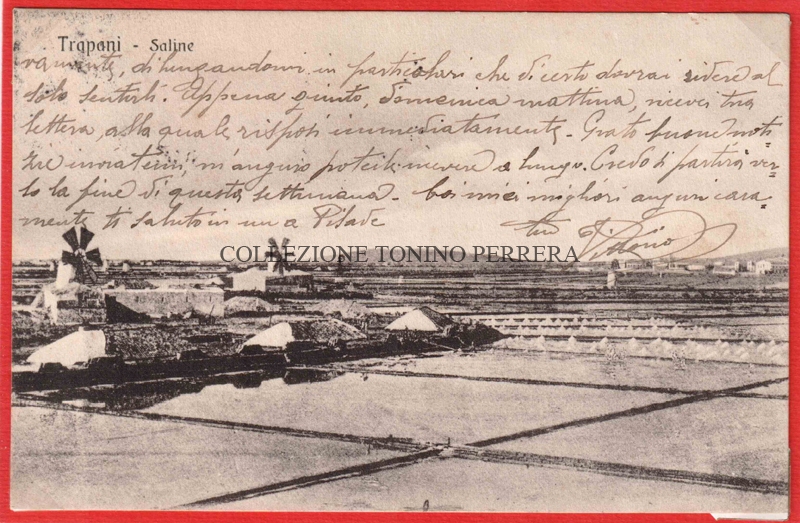 Trapani - Saline
vamente, dilungandomi in particolari che di certo dovrai ridere al
solo sentirli. Appena giunto, domenica mattina, ricevei tua
lettera, alla quale risposi immediatamente. Grato buone noti=
zie inviatemi, m'auguro poterti rivedere a lungo. Credo ti partirà ver=
so la fine di questa settimana. Coi miei migliori auguri cara=
mente ti saluto in un a Pilade
tuo Vittorio
COLLEZIONE TONINO PERRERA